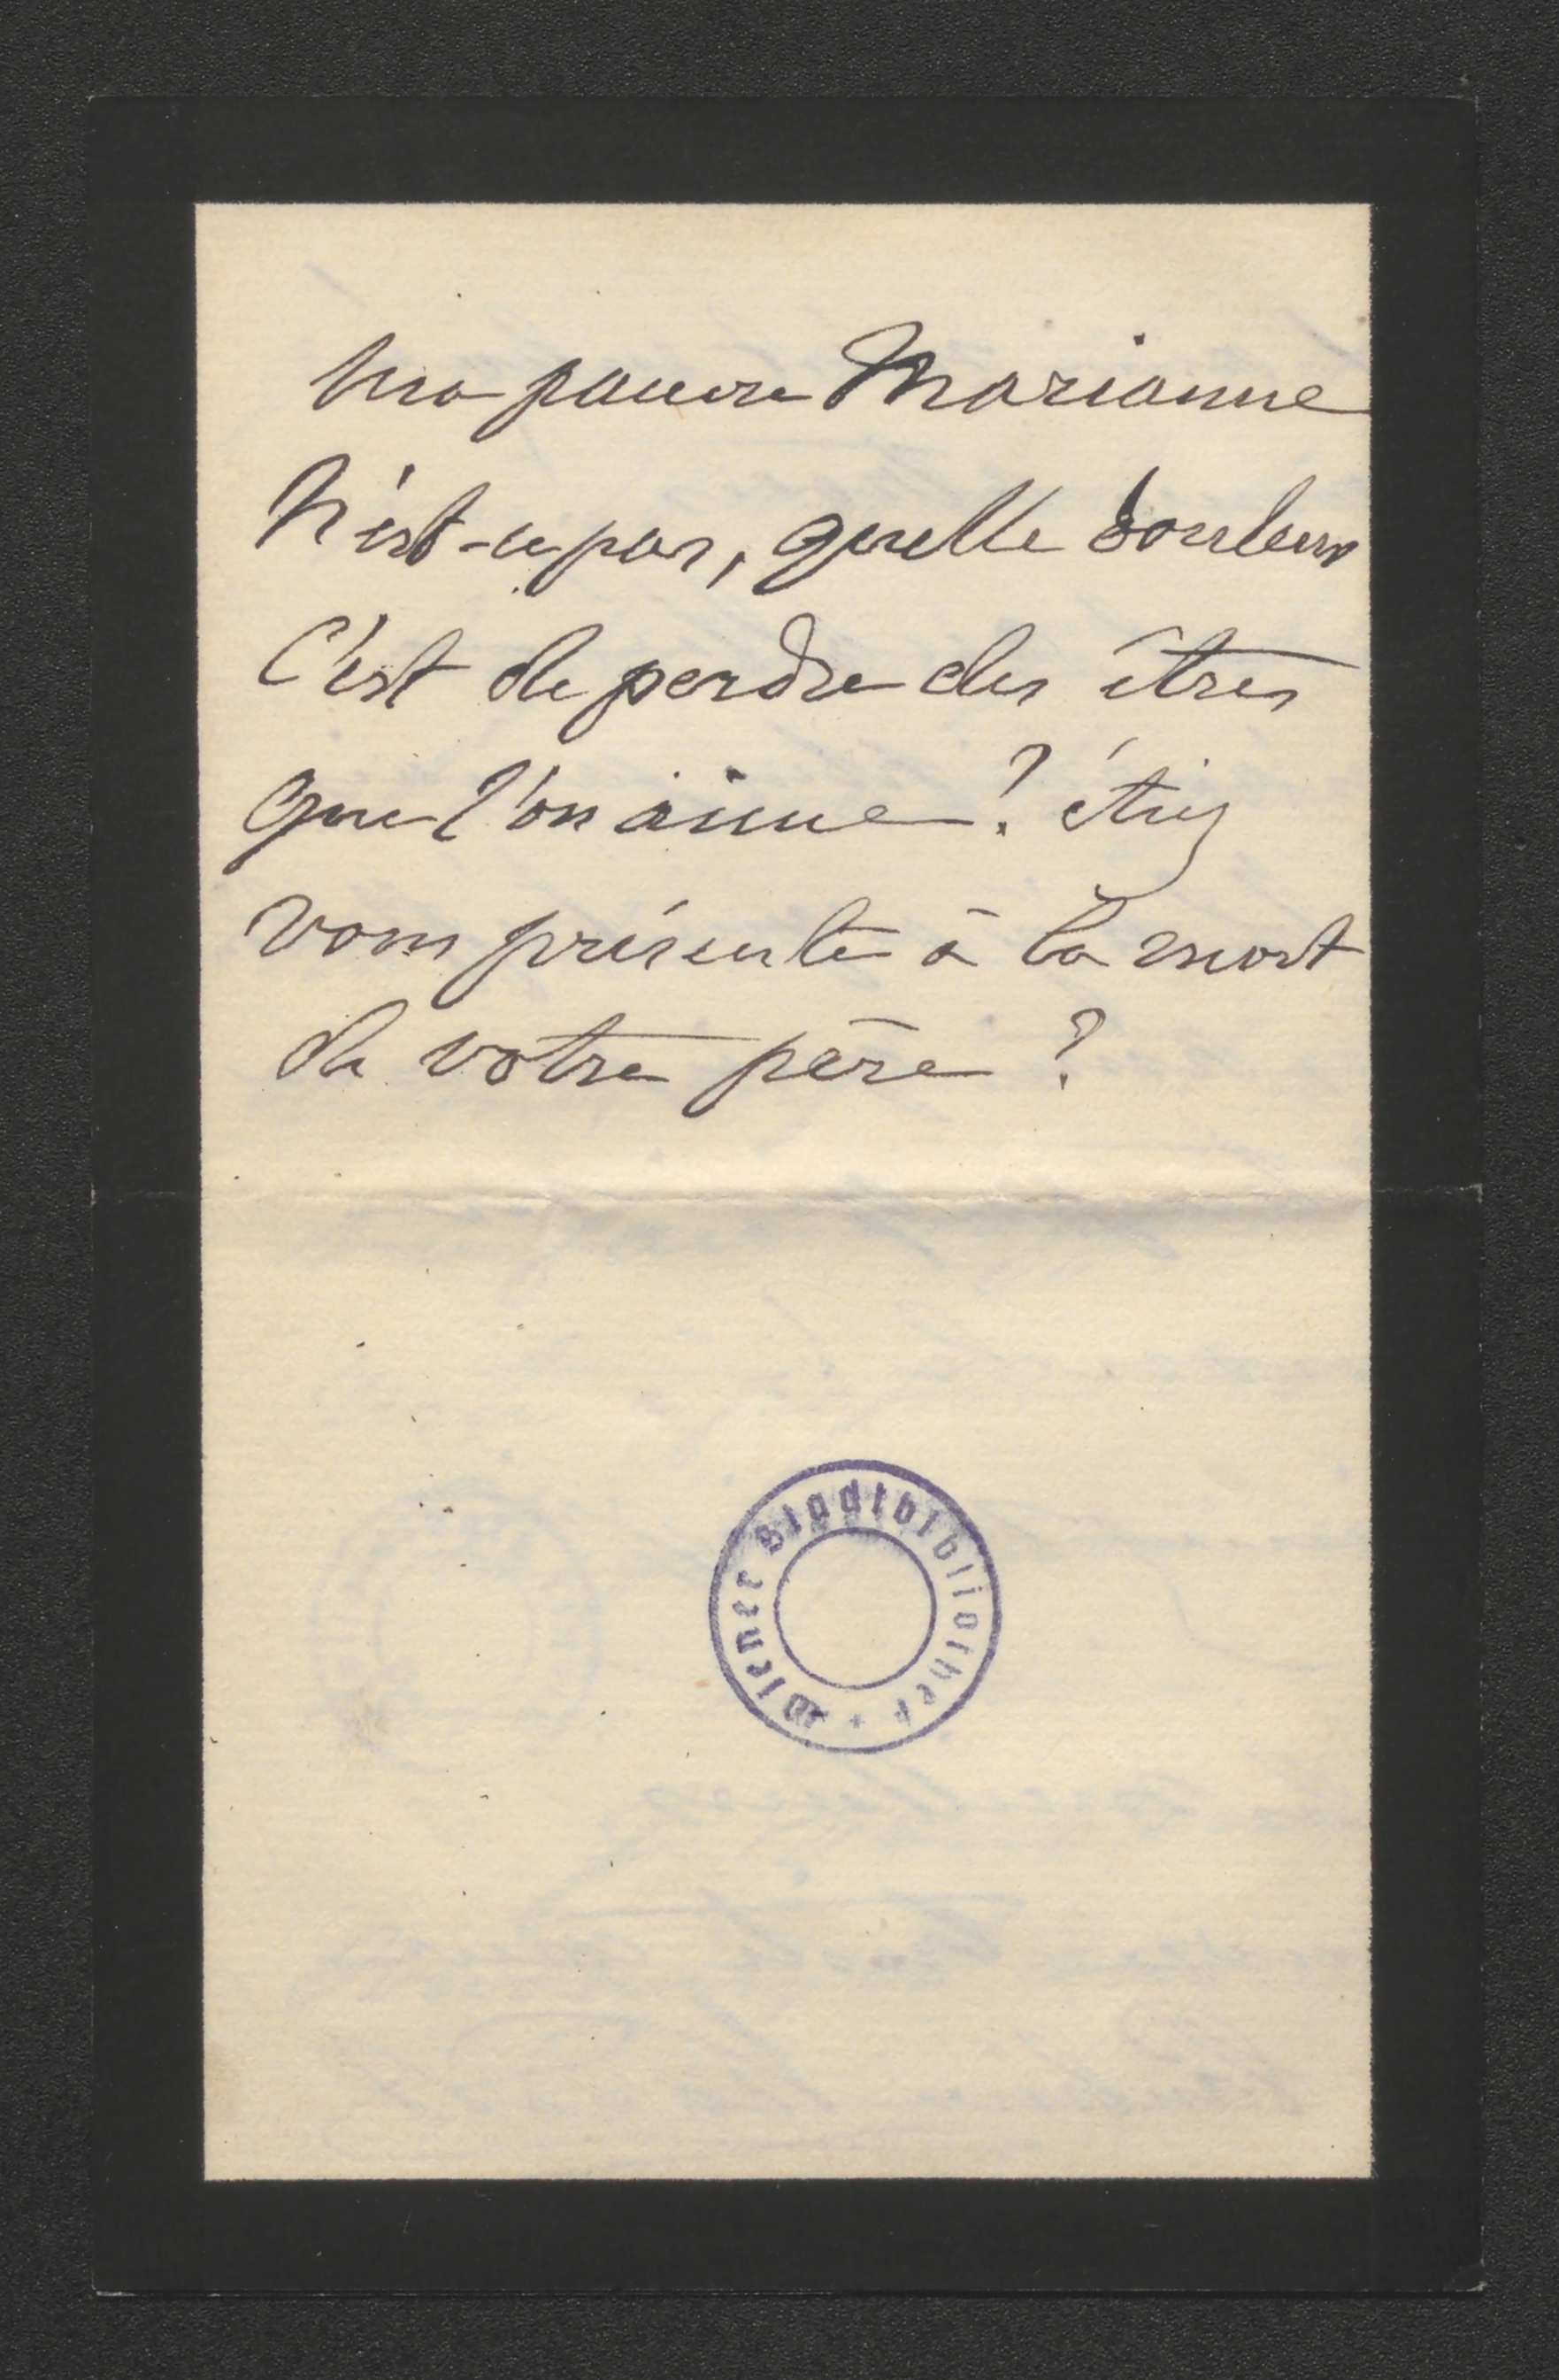 Ma pauvre Marianne
N'est-ce pas, quelle douleur
C'est de perdre des êtres
que l'on aime? étiez
vous présente à la mort
de votre père?
Wiener Stadtbibliothek